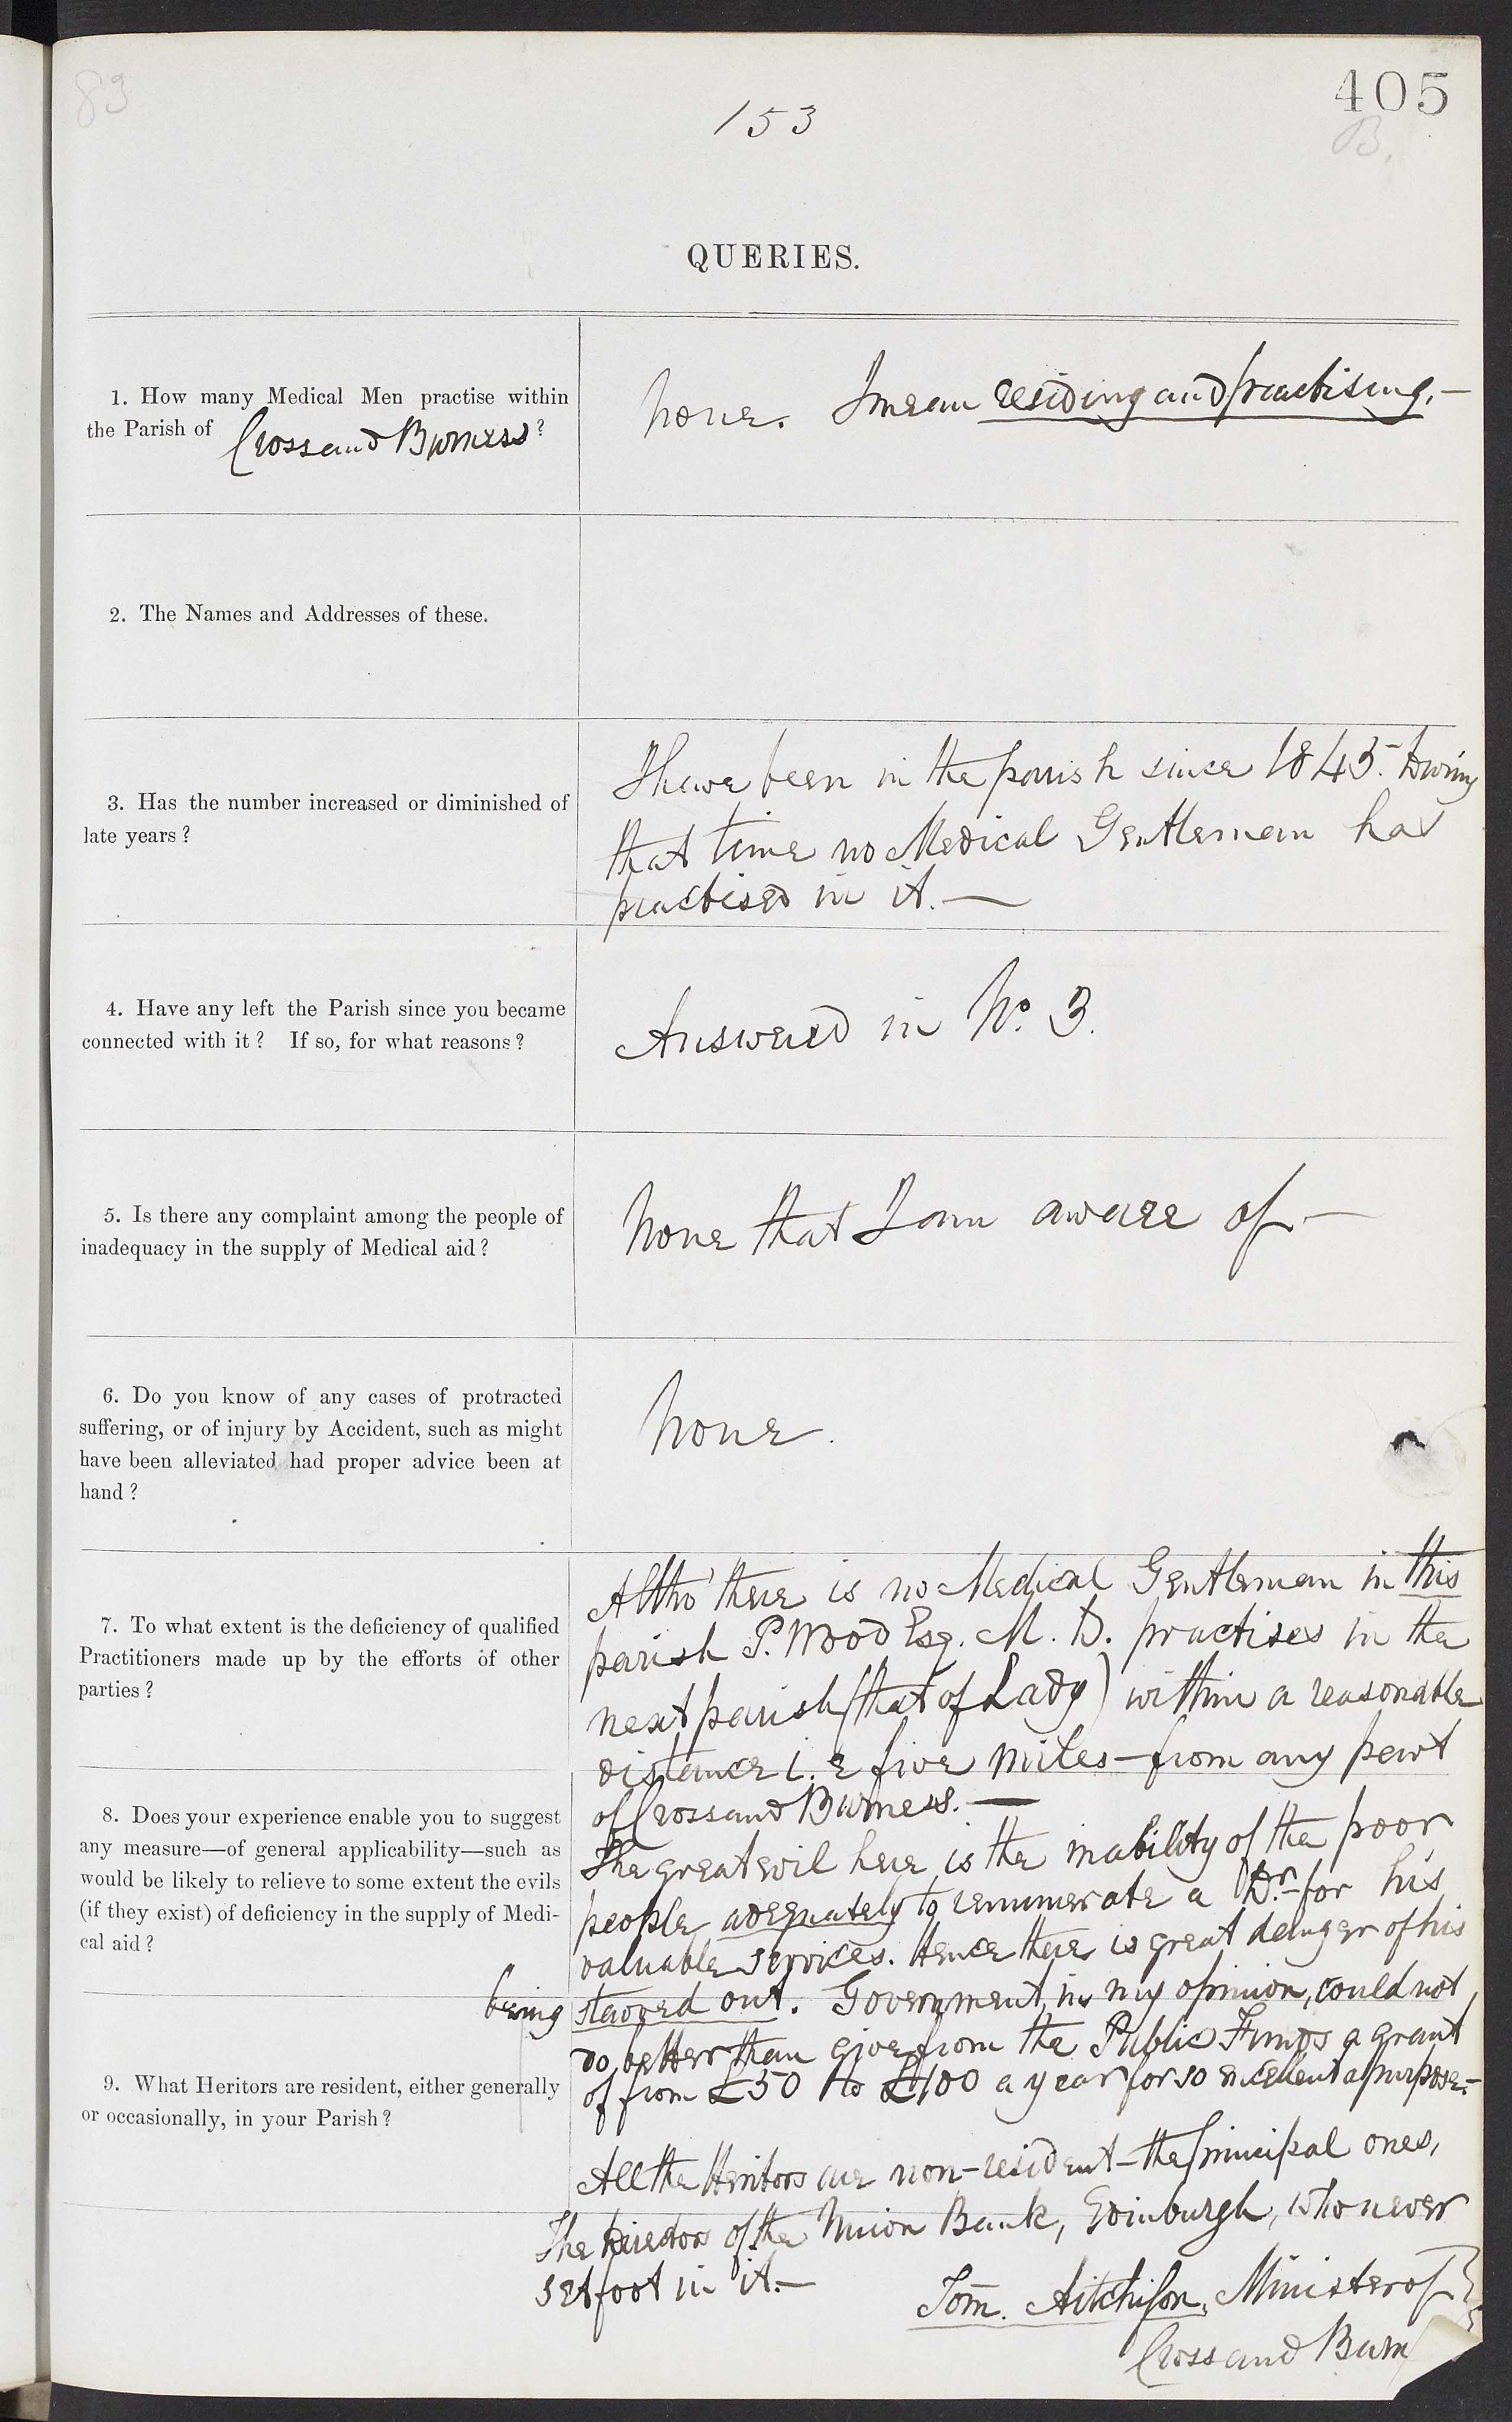 83
153
405
B.
QUERIES.
1. How many Medical Men practise within
the Parish of Cross and Burness?
None. I mean residing and practising.—
2. The Names and Addresses of these.
3. Has the number increased or diminished of
late years?
I have been in the parish since 1845. During
that time no Medical Gentleman has
practised in it.—
4. Have any left the Parish since you became
connected with it? If so, for what reasons?
Answered in No. 3.
5. Is there any complaint among the people of
inadequacy in the supply of Medical aid?
None that I am aware of—
6. Do you know of any cases of protracted
suffering, or of injury by Accident, such as might
have been alleviated had proper advice been at
hand?
None.
7. To what extent is the deficiency of qualified
Practitioners made up by the efforts of other
parties?
Altho' there is no Medical Gentleman in this
parish P. Wood Esq. M. D. practises in the
next parish (that of Lady) within a reasonable
distance i. e five miles—from any part
of Cross and Burness.—
8. Does your experience enable you to suggest
any measure—of general applicability—such as
would be likely to relieve to some extent the evils
(if they exist) of deficiency in the supply of Medi-
cal aid?
The great evil here is the inability of the poor
people adequately to remunerate a Dr.—for his
valuable services. Hence there is great danger of his
being starved out. Government, in my opinion, could not
do better than give from the Public Funds a grant
of from £50 to £100 a year for so excellent a purpose.—
9. What Heritors are resident, either generally
or occasionally, in your Parish?
All the Heritors are non-resident—the principal ones,
The Directors of the Union Bank, Edinburgh, who never
set foot in it.—
Tom. Aitchison, Minister of
Cross and Burn